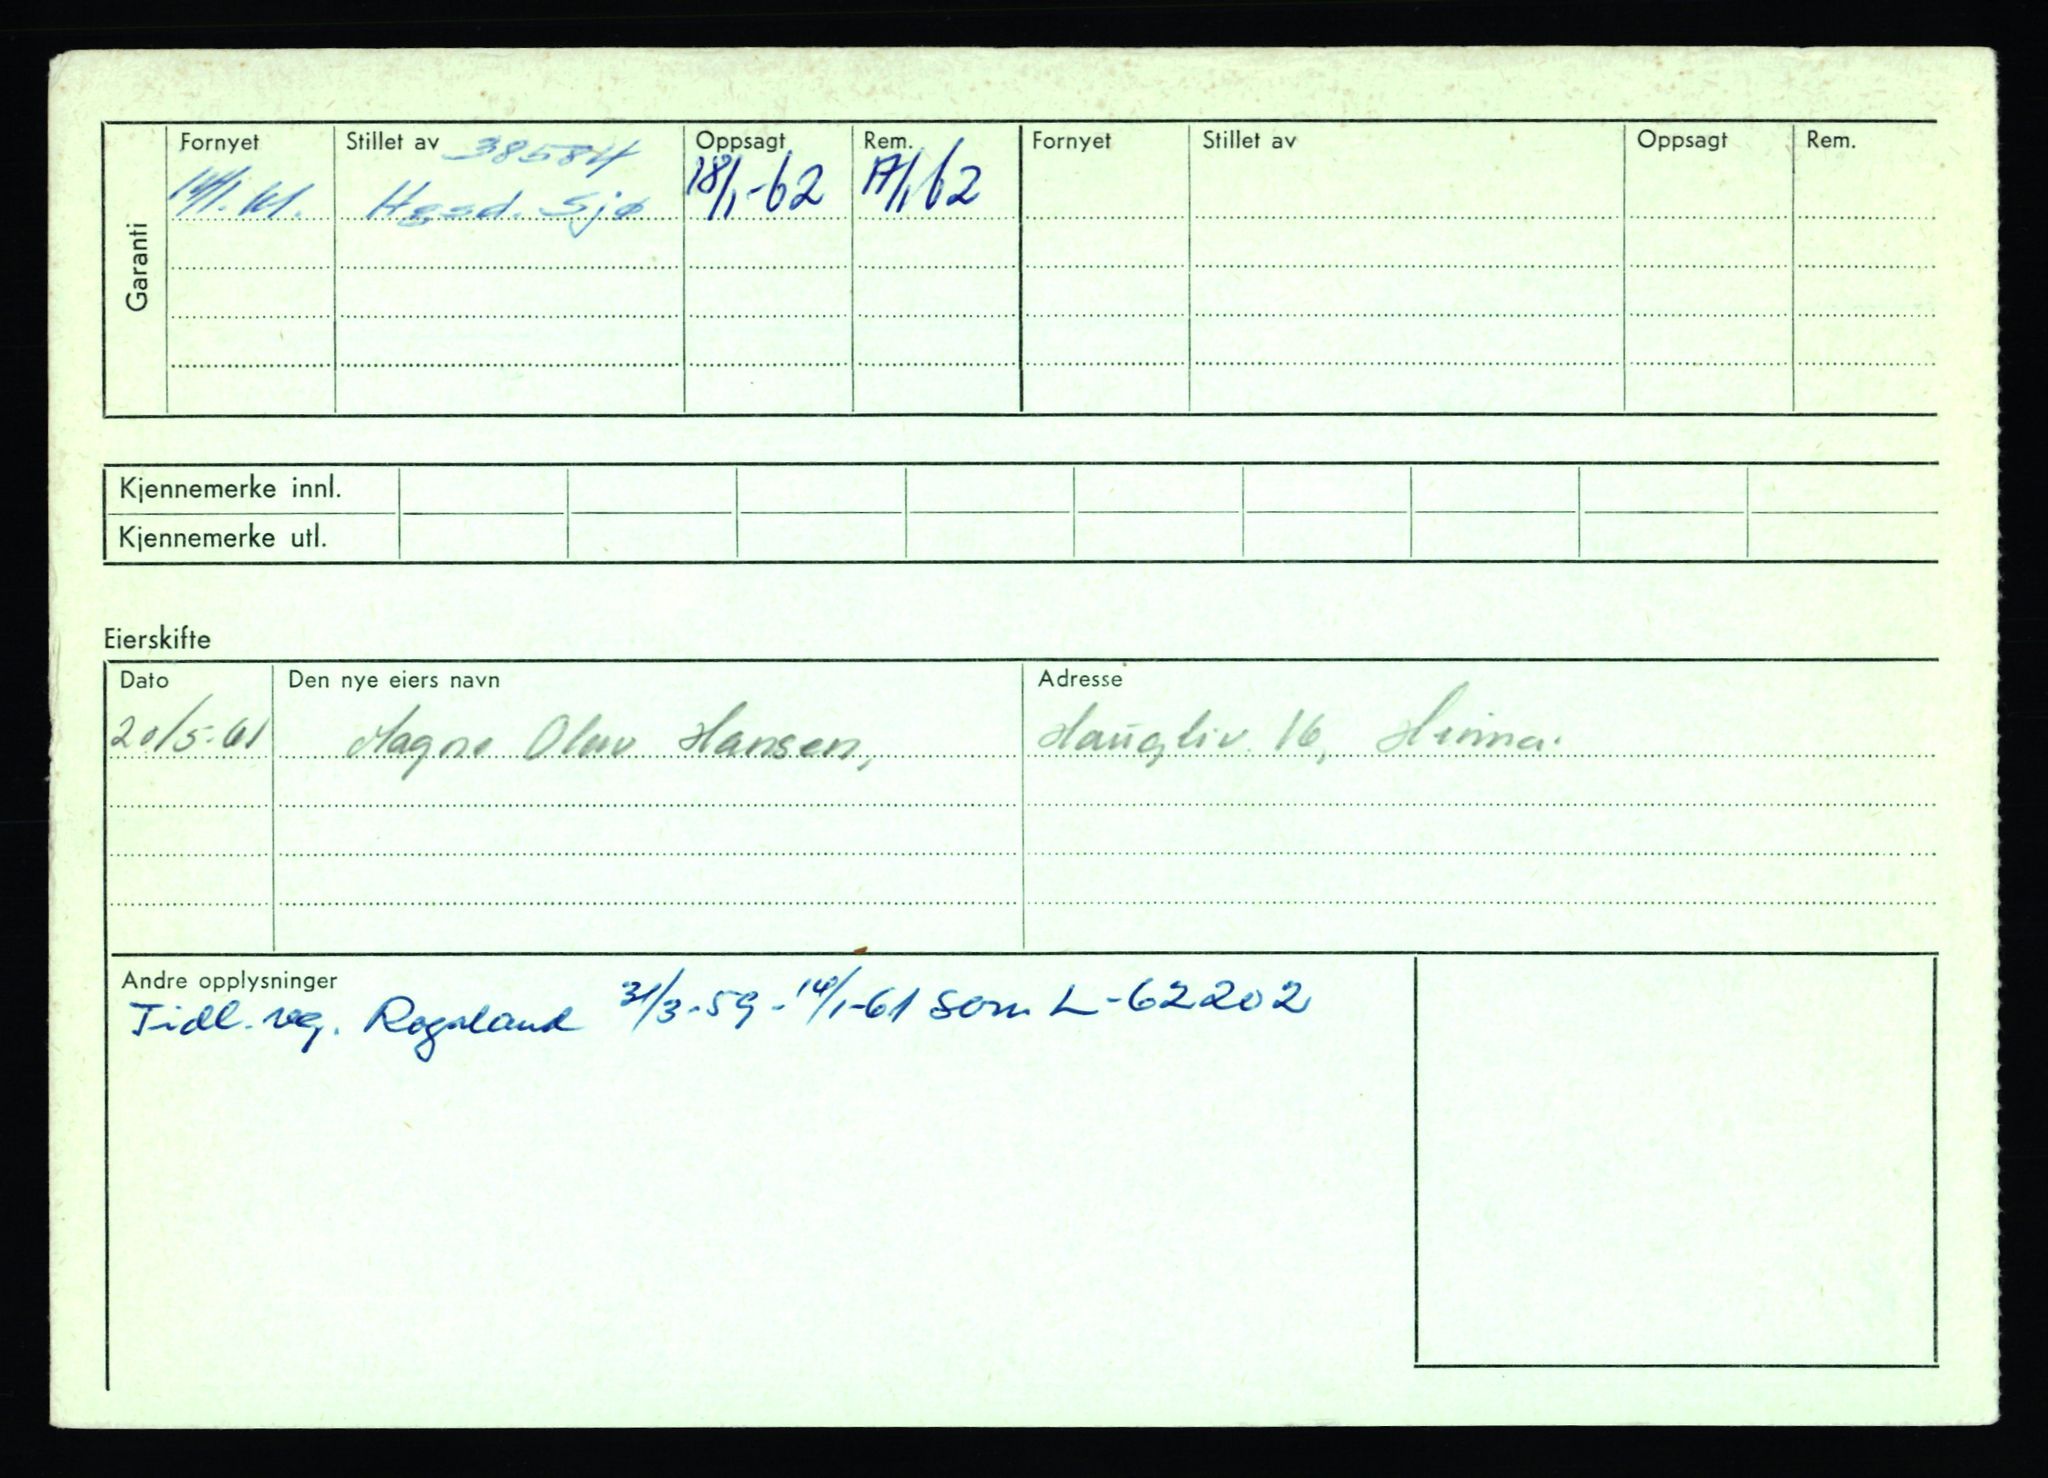 Garanti
Fornyet Stillet av 38584 Oppsagt Rem. Fornyet Stillet av Oppsagt Rem.
14/1-61. Hgsd. Sjø 18/1-62 17/1 62
Kjennemerke innl.
Kjennemerke utl.
Eierskifte
Dato Den nye eiers navn Adresse
20/5-61 Magne Olav Hansen, Haugliv. 16,
Andre opplysninger
Tidl. reg. Rogaland 31/3-59-14/1-61 som L-62202